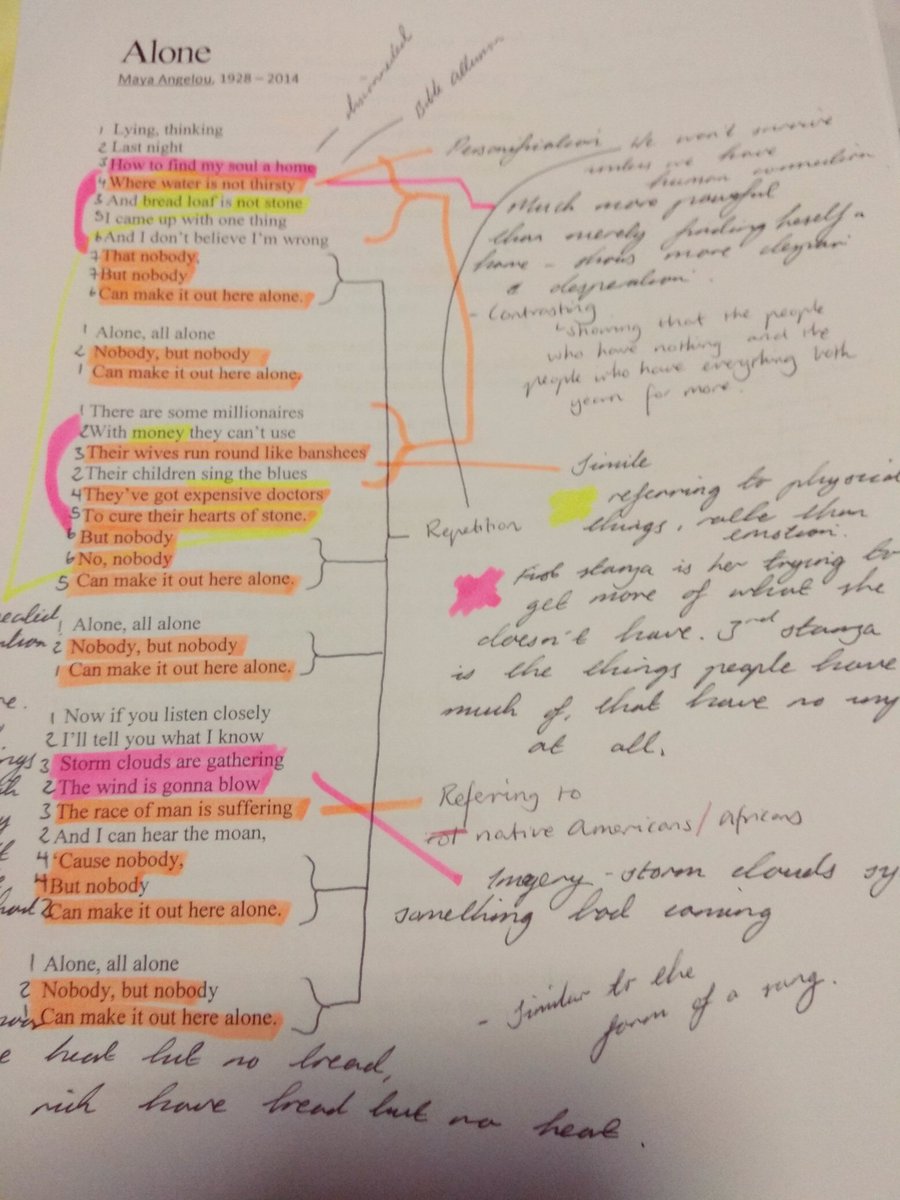 Alone
Maya Angelou, 1928 – 2014
disconnected
Bible Allusion
1 Lying, thinking
2 Last night
3 How to find my soul a home
4 Where water is not thirsty
3 And bread loaf is not stone
5 I came up with one thing
6 And I don't believe I'm wrong
7 That nobody,
7 But nobody
6 Can make it out here alone.
1 Alone, all alone
2 Nobody, but nobody
1 Can make it out here alone.
1 There are some millionaires
2 With money they can't use
3 Their wives run round like banshees
2 Their children sing the blues
4 They've got expensive doctors
5 To cure their hearts of stone.
6 But nobody
6 No, nobody
5 Can make it out here alone.
1 Alone, all alone
2 Nobody, but nobody
1 Can make it out here alone.
1 Now if you listen closely
2 I'll tell you what I know
3 Storm clouds are gathering
2 The wind is gonna blow
3 The race of man is suffering
2 And I can hear the moan,
4 'Cause nobody,
4 But nobody
2 Can make it out here alone.
1 Alone, all alone
2 Nobody, but nobody
1 Can make it out here alone.
Personification
We won't survive
unless we have
human connection
Much more powerful
than merely finding herself a
home – shows more despair
& desperation.
- Contrasting
showing that the people
who have nothing and the
people who have everything both
yearn for more.
Simile
Repetition
referring to physical
things, rather than
emotion.
First stanza is her trying to
get more of what she
doesn't have. 3rd stanza
is the things people have
much of, that have no
at all.
Refering to
native Americans / Africans
Imagery - storm clouds sy
something bad coming
- Similar to the
form of a song.
heat but no bread,
rich have bread but no heat.